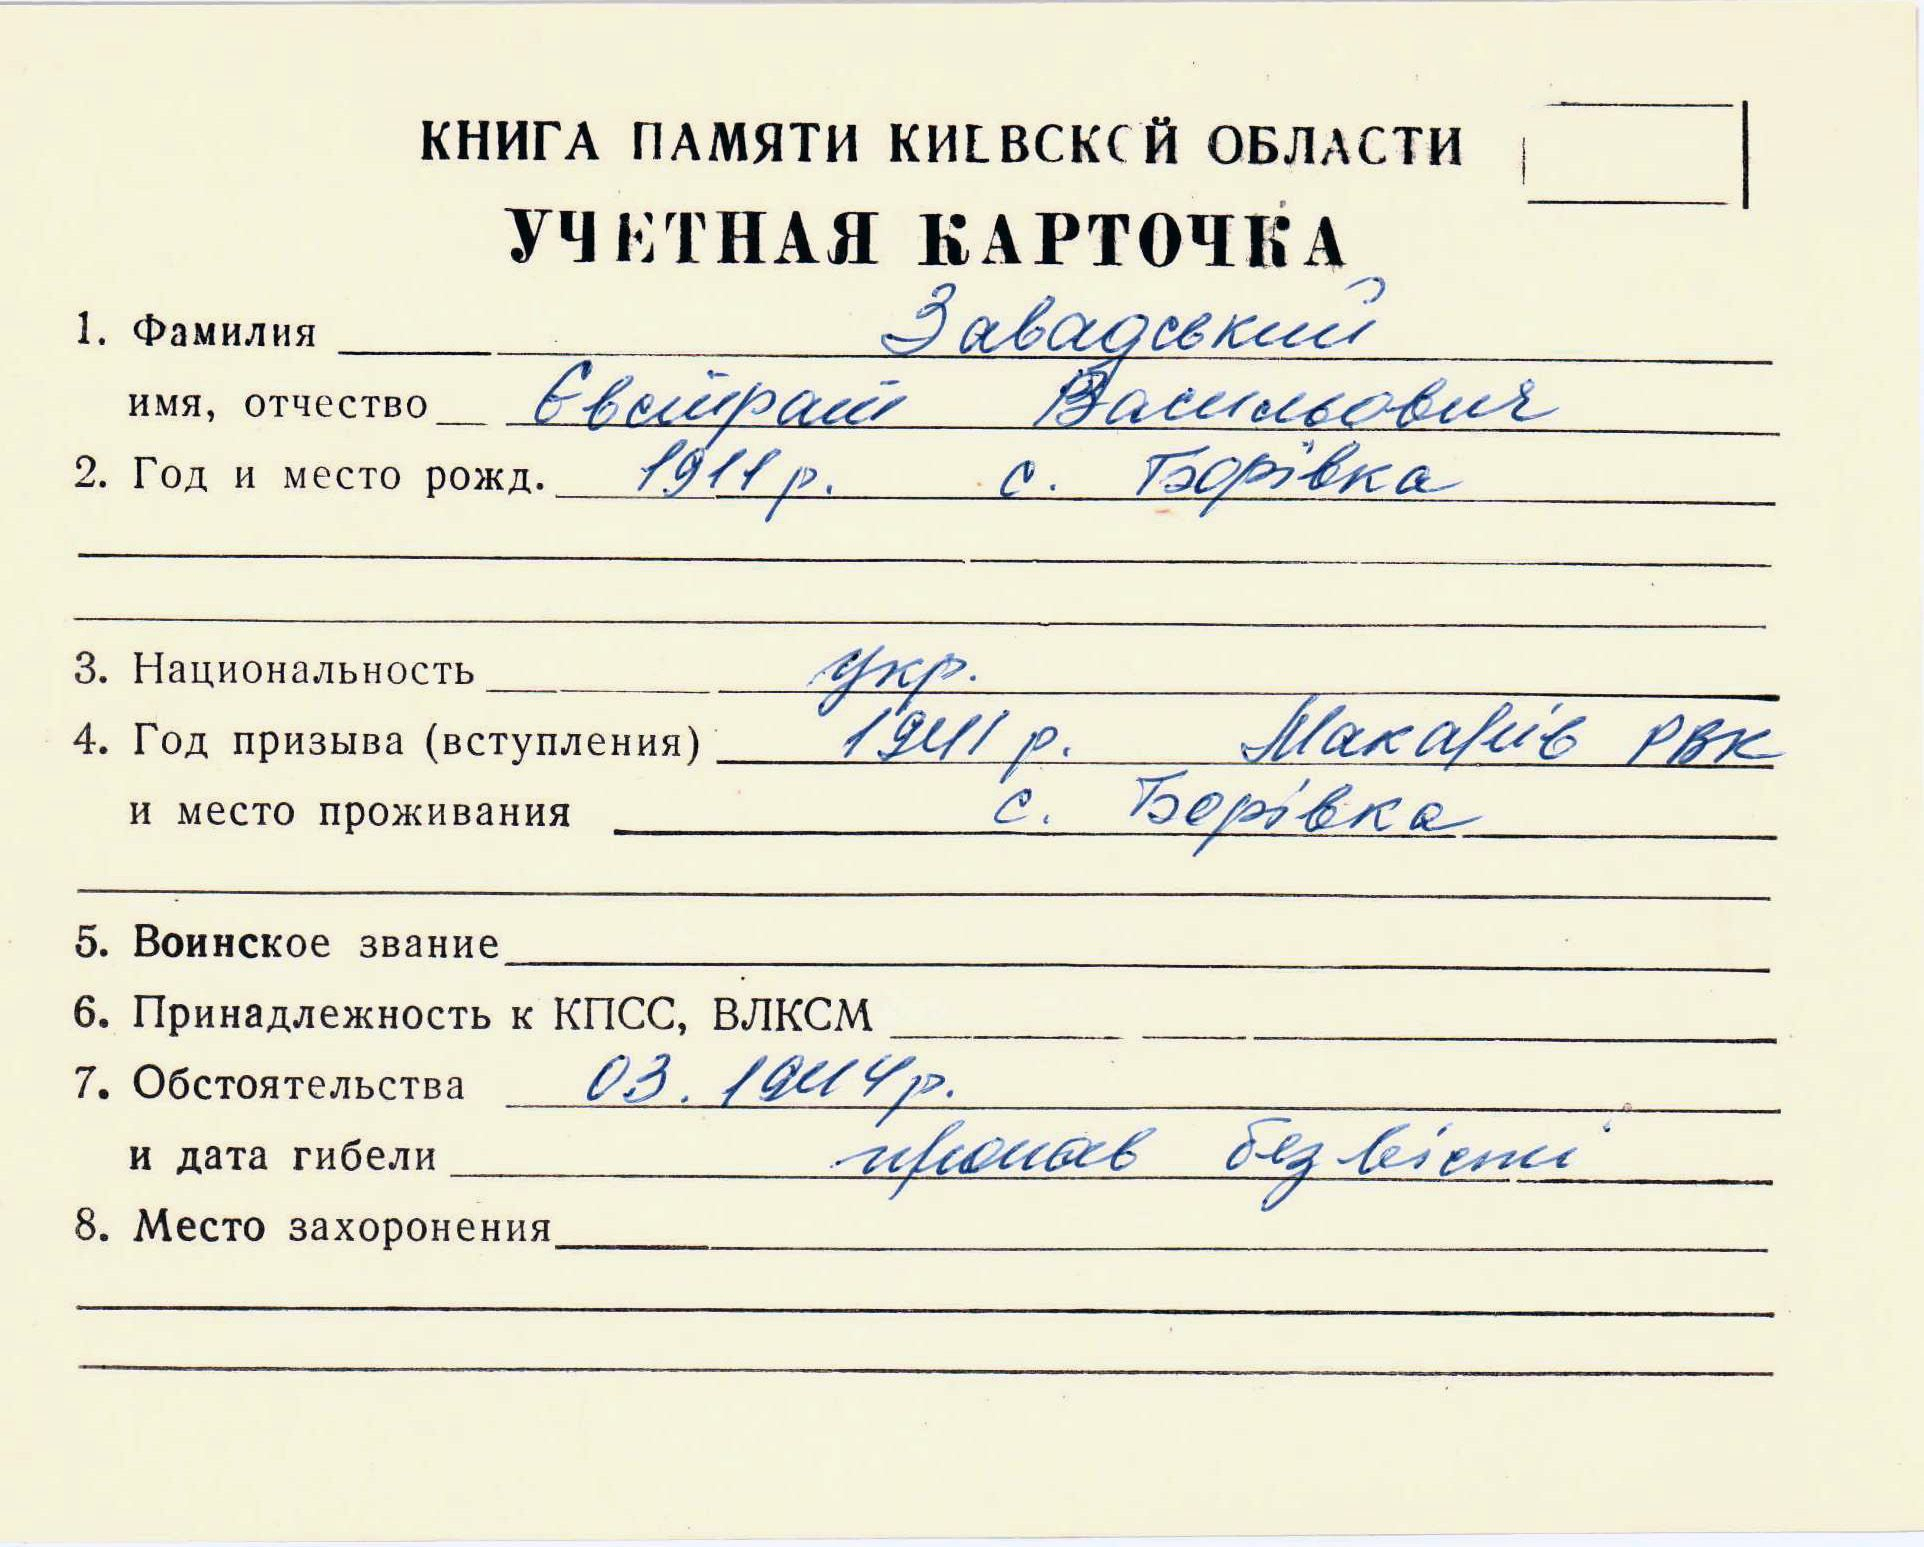 КНИГА ПАМЯТИ КИЕВСКОЙ ОБЛАСТИ
УЧЕТНАЯ КАРТОЧКА
1. Фамилия Завадський
имя, отчество Євстрат Васильович
2. Год и место рожд. 1911 р. с. Борівка
3. Национальность укр.
4. Год призыва (вступления) 1941 р. Макарів РВК
и место проживания с. Борівка
5. Воинское звание
6. Принадлежность к КПСС, ВЛКСМ
7. Обстоятельства 03. 1944 р.
и дата гибели пропав безвісті
8. Место захоронения